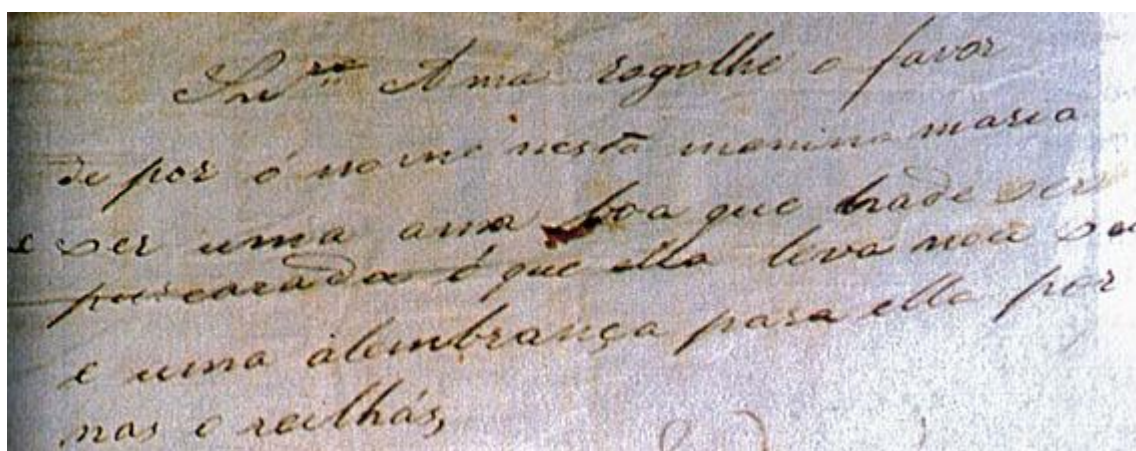 Snrª Ama rogolhe o favor
de por ó nome nesta menina maria
e ser uma ama boa que hade ser
percarada é que ella leva
e uma alembrança para ella por
nas oreilhás,